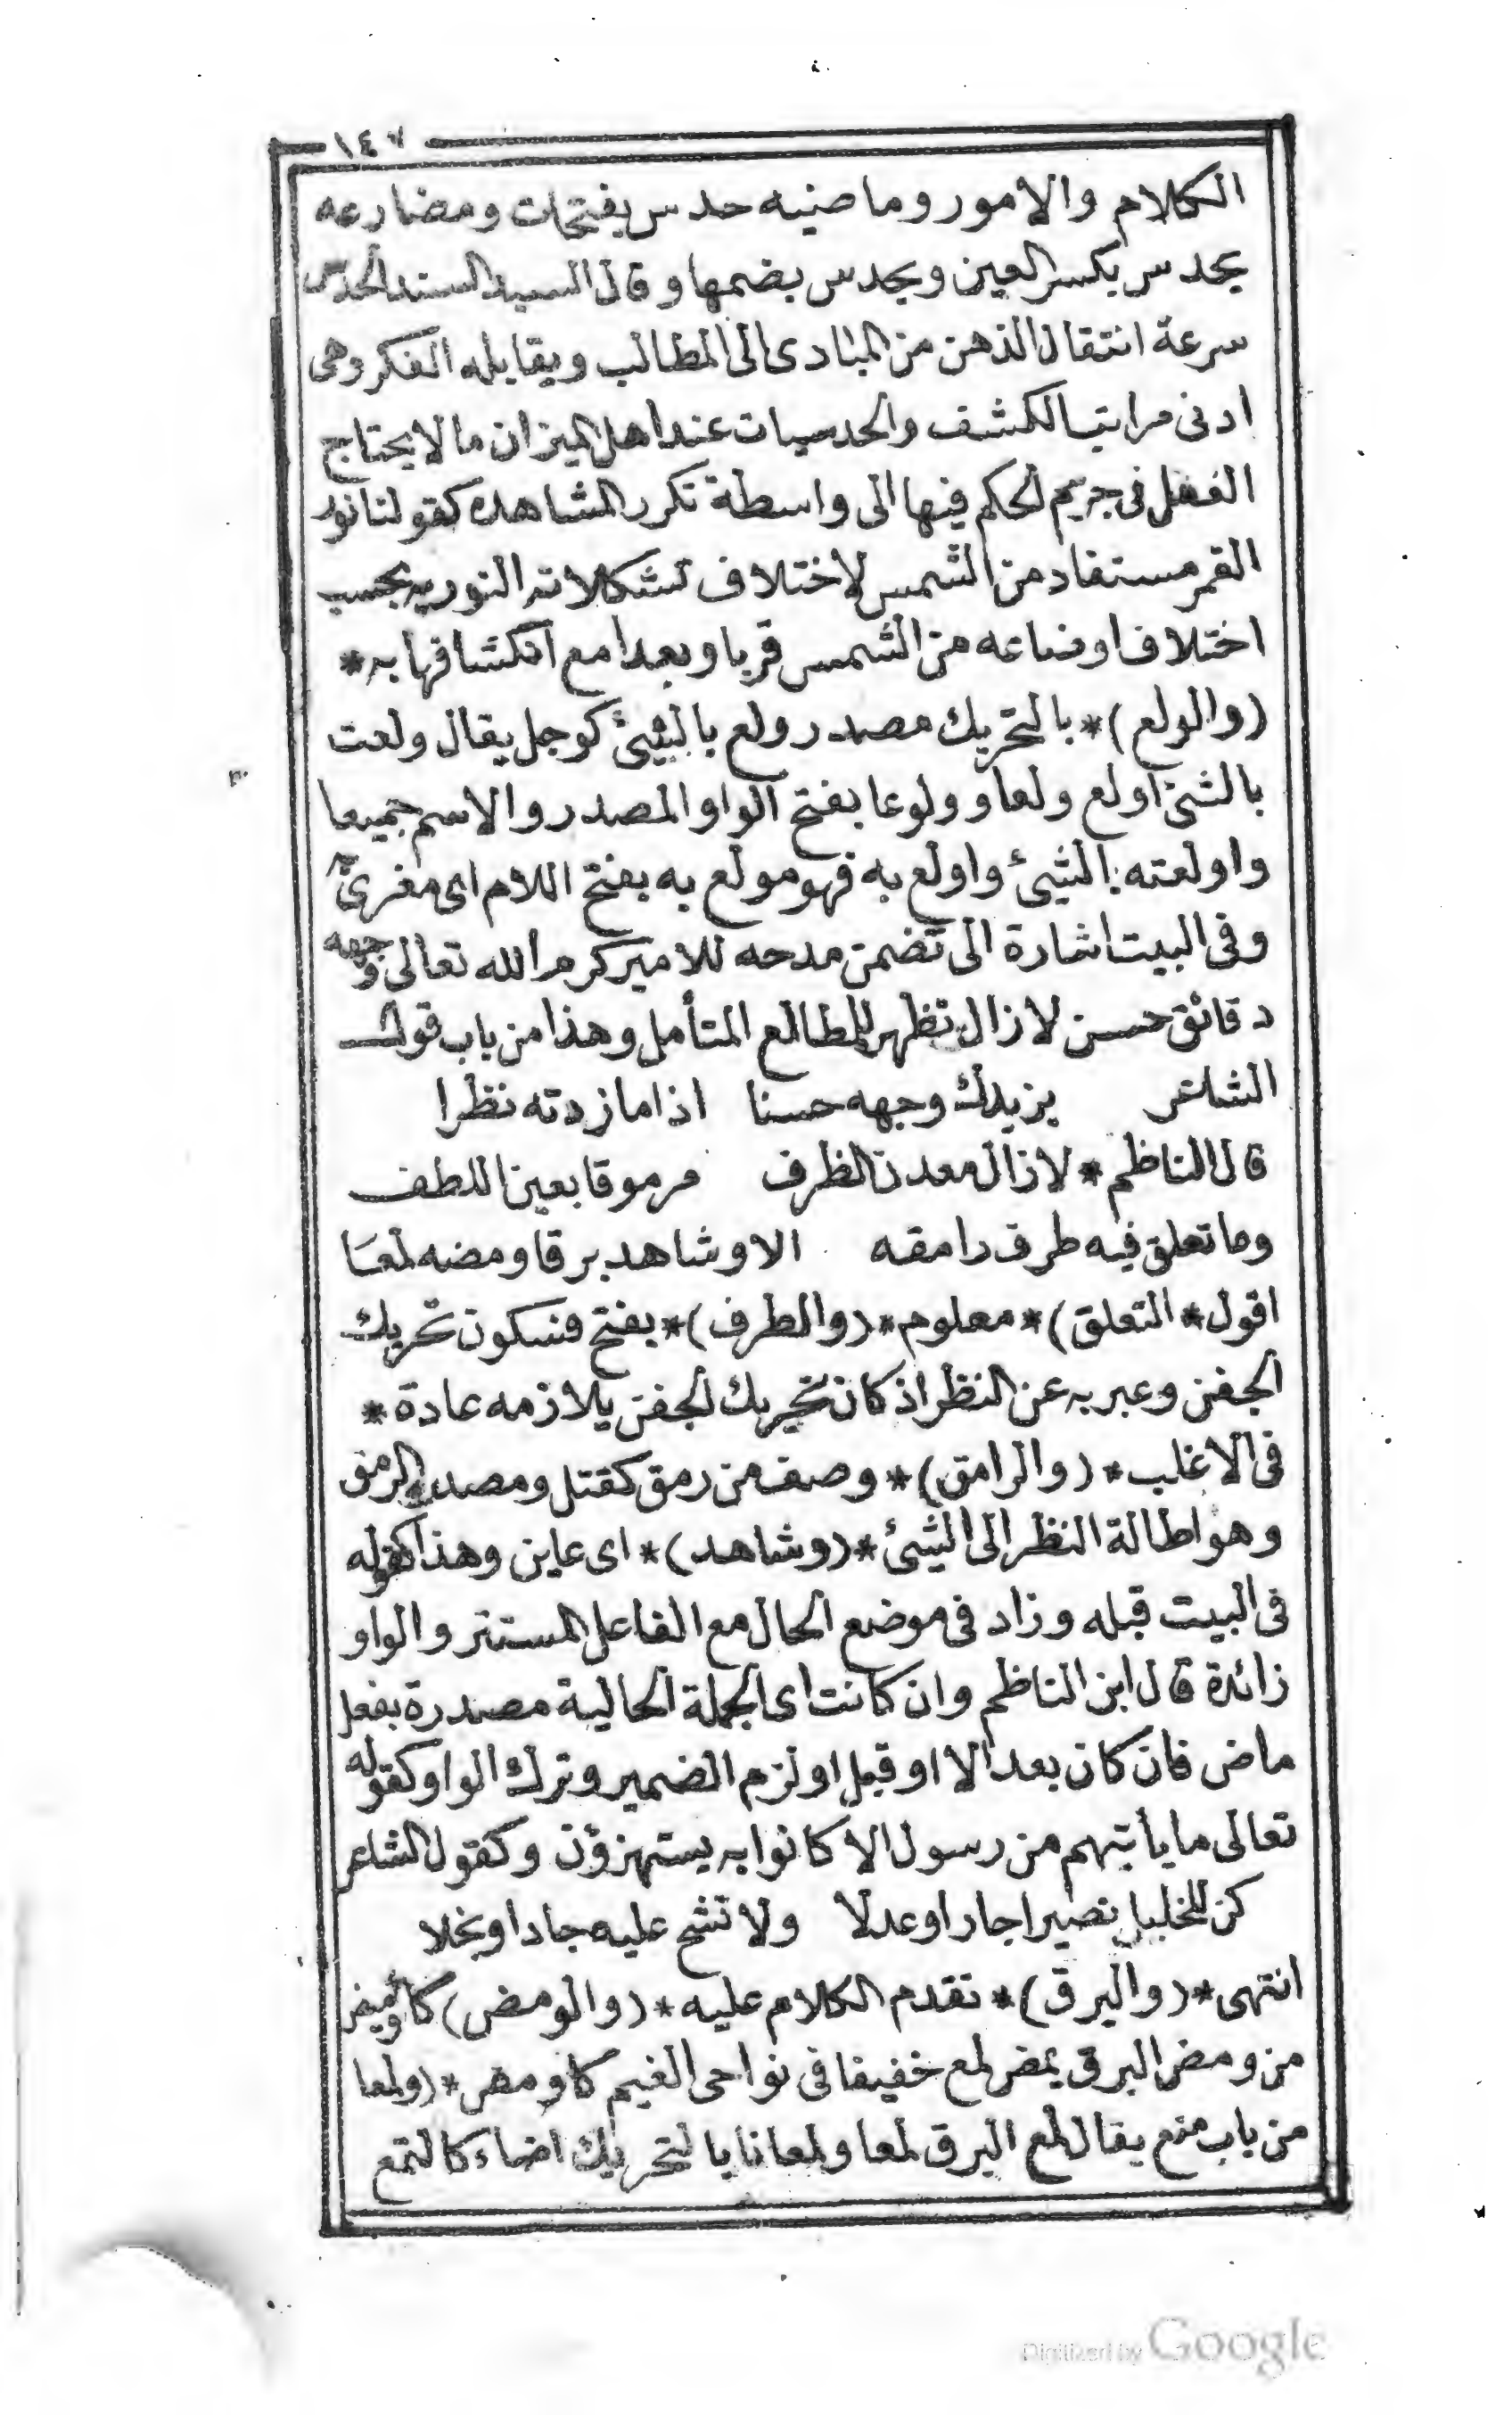 ١٤٧
الكلام والامور وماضيه حدس بفتحات ومضارعه
يحدس بكسر العين ويحدس بضمها وقال السيد السند الحدس
سرعة انتقال الذهن من المبادى الى المطالب ويقابله الفكر وهى
ادنى مراتب الكشف والحدسيات عند اهل الميزان مالا يحتاج
العقل فى جزم الحكم فيها الى واسطة تكرر المشاهده كقولنا نور
القمر مستفاد من الشمس لاختلاف تشكلاته النوريه بحسب
اختلاف اوضاعه من الشمس قربا وبعدا مع انكشافها به *
(والولع)* بالتحريك مصدر ولع بالشيئ كوجل يقال ولعت
بالشئ اولع ولعا وولوعا بفتح الواو المصدر والاسم جميعا
واولعته بالشيئ واولع به فهو مولع به بفتح اللام اى مغرى به
وفى البيت اشارة الى تضمن مدحه للامير كرم الله تعالى وجهه
دقائق حسن لازال تظهر للمطالع المتأمل وهذا من باب قول
الشاعر يزيدك وجهه حسنا اذا ما زدته نظرا
قال الناظم * لازال معدن الظرف مرموقا بعين اللطف
وما تعلق فيه طرف رامقه الا وشاهد برقا ومضه لمعا
اقول * التعلق)* معلوم * (والطرف)* بفتح فسكون تحريك
الجفن وعبر به عن النظر اذ كان تحريك الجفن يلازمه عادة *
فى الاغلب * (والرامق)* وصف من رمق كقتل ومصدره الرمق
وهو اطالة النظر الى الشيئ * (وشاهد)* اى عاين وهذا كقوله
فى البيت قبله وزاد فى موضع الحال مع الفاعل المستتر والواو
زائدة قال ابن الناظم وان كانت اى الجملة الحالية مصدرة بفعل
ماض فان كان بعد الا او قبل او لزم الضمير وترك الواو كقوله
تعالى ما يأتيهم من رسول الا كانوا به يستهزؤن وكقول الشاعر
كن للخليل نصيرا جار او عدلا ولا تشح عليه جاد او بخلا
انتهى * (والبرق)* تقدم الكلام عليه * (والومض) كالوميض
من ومض البرق يمض لمع خفيفا فى نواحى الغيم كاومض * (ولمعا
من باب منع يقال لمع البرق لمعا ولمعانا بالتحريك اضاء كالتمع
Digitized by Google